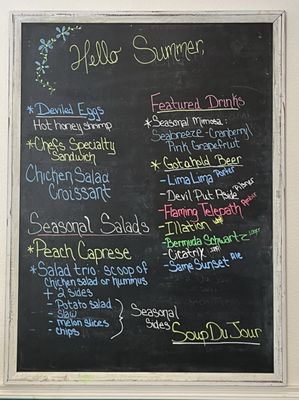 Hello Summer,
* Deviled Eggs
Hot honey shrimp
* Chef's Specialty
Sandwich
Chicken Salad
Croissant
Seasonal Salads
* Peach Caprese
* Salad trio: scoop of
chicken salad or hummus
+ 2 sides
- Potato salad
- slaw
- melon slices
- chips
Seasonal
Sides
Featured Drinks
* Seasonal Mimosa:
Seabreeze - Cranberry
Pink Grapefruit
* Gotahold Beer
- Lima Lima Porter
- Devil Put Aside Pilsner
- Flaming Telepath Porter
- Illation
- Bermuda Schwartz Lager
- Cicatrix
- Same Sunset Ale
Soup Du Jour